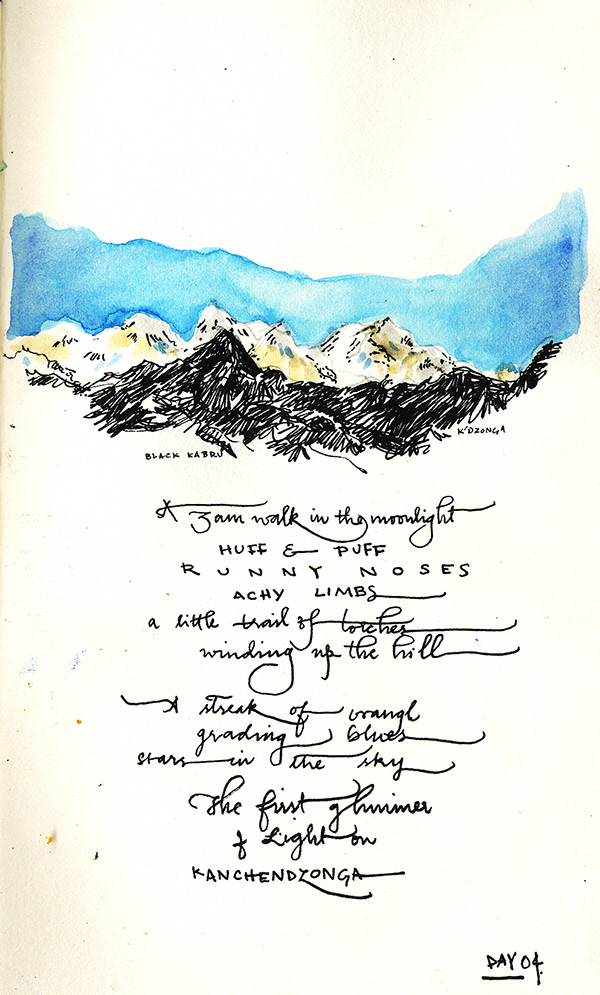 BLACK KABRU
K'DZONGA
A 3am walk in the moonlight
HUFF & PUFF
RUNNY NOSES
ACHY LIMBS
a little trail of torches
winding up the hill
A streak of orange
grading blues
stars in the sky
The first glimmer
of Light on
KANCHENDZONGA
DAY 04